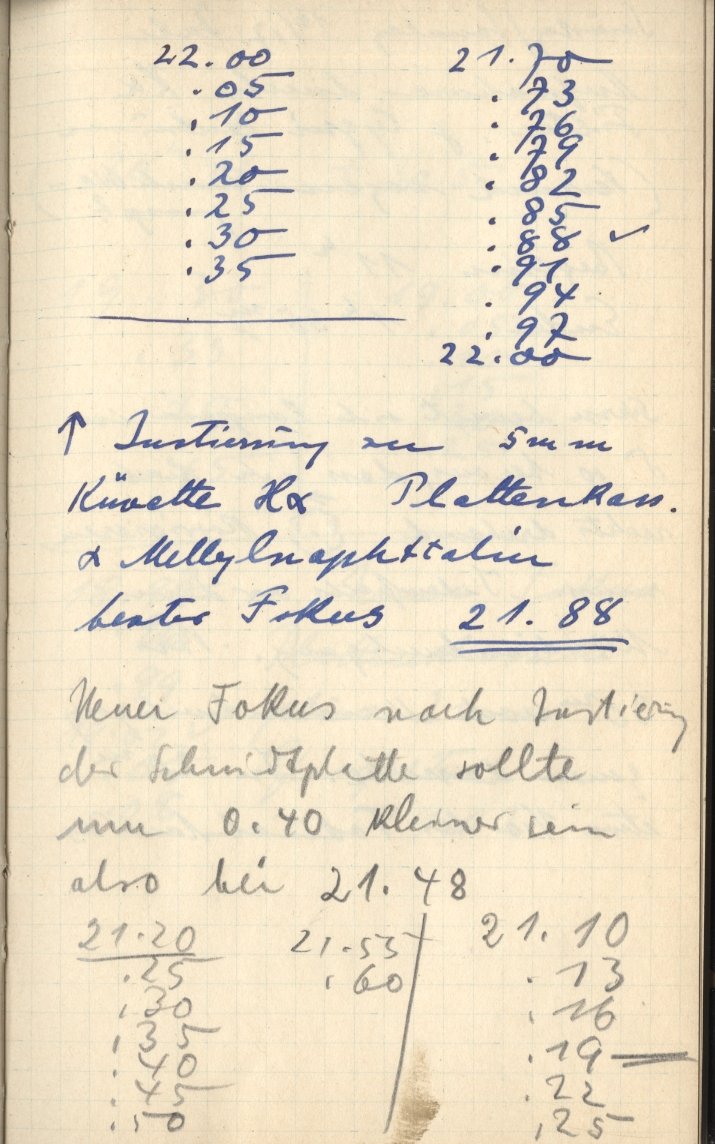 22.00
.05
.10
.15
.20
.25
.30
.35
21.70
.73
.76
.79
.82
.85
.88 ✓
.91
.94
.97
22.00
↑ Justierung zu 5mm
Küvette Hα Plattenkass.
α Methylnaphttalin
bester Fokus 21.88
Neuer Fokus nach Justierung
der Schmidtplatte sollte
um 0.40 kleiner sein
also bei 21.48
21.20
.25
.30
.35
.40
.45
.50
21.55
.60
21.10
.13
.16
.19 —
.22
.25